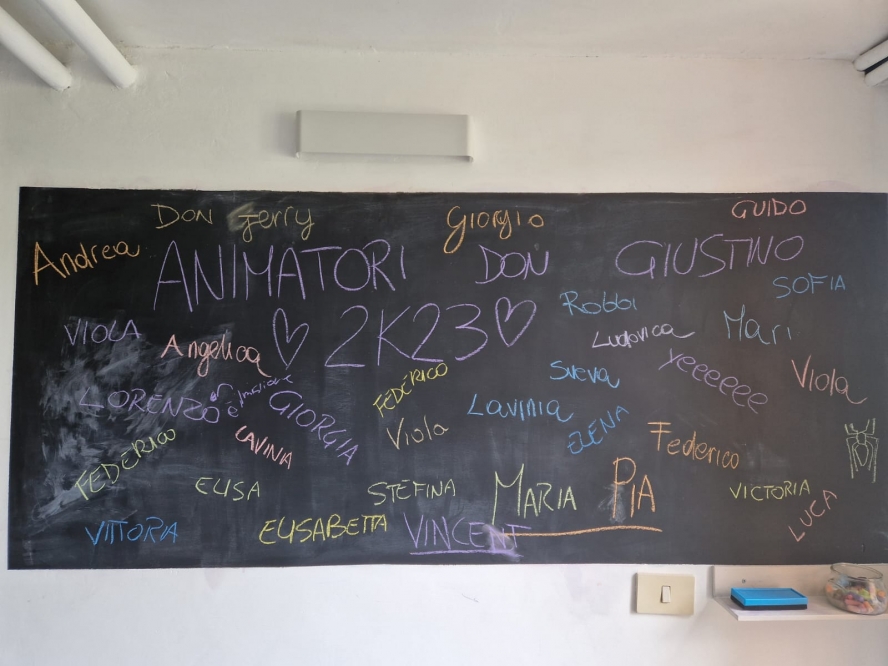 DON Jerry
Giorgio
GUIDO
Andrea
ANIMATORI DON GIUSTINO
SOFIA
♡ 2K23 ♡
Robbi
VIOLA
Angelica
Ludovica
Mari
LORENZO
GIORGIA
FEDERICO
Sveva
yeeeeeee
Viola
Viola
Lavinia
ELENA
FEDERICO
LAVINA
Federico
ELISA
STEFINA
MARIA PIA
VICTORIA
LUCA
VITTORIA
ELISABETTA
VINCENT